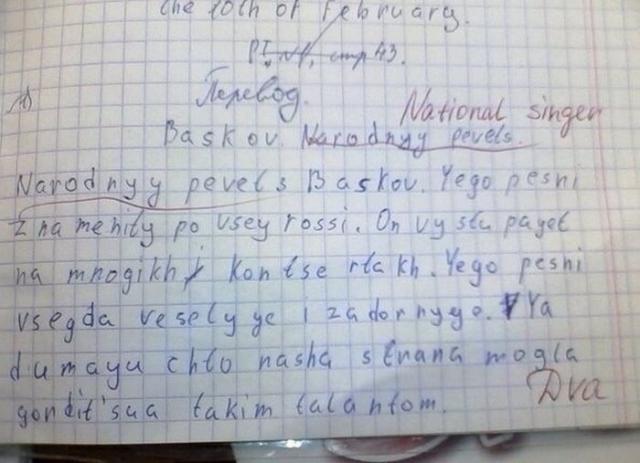 the 10th of February.
PI, №1, стр 43.
1)
Перевод.
National singer
Baskov. Narodnyy pevets.
Narodnyy pevets Baskov. Yego pesni
znamenity po vsey rossi. On vystupayet
na mnogikh kontsertakh. Yego pesni
vsegda veselyye i zadornyye. Ya
dumayu chto nasha strana mogla
gordit'sua takim talantom.
Dva